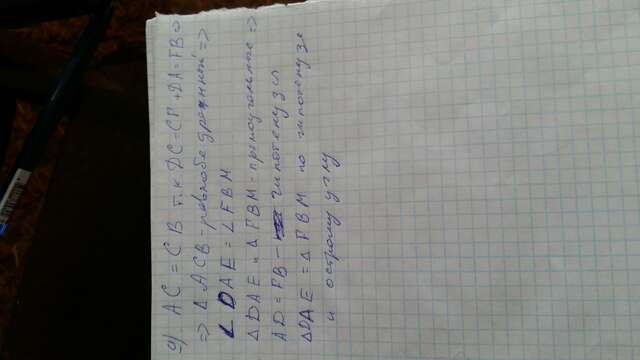 а) AC = CB т.к DC = CF + DA = FB =>
=> Δ ACB - равнобедренный =>
∠ DAE = ∠ FBM
Δ DAE и Δ FBM - прямоугольные =>
AD = FB - гипотенузы
ΔDAE = Δ FBM по гипотенузе
и острому углу